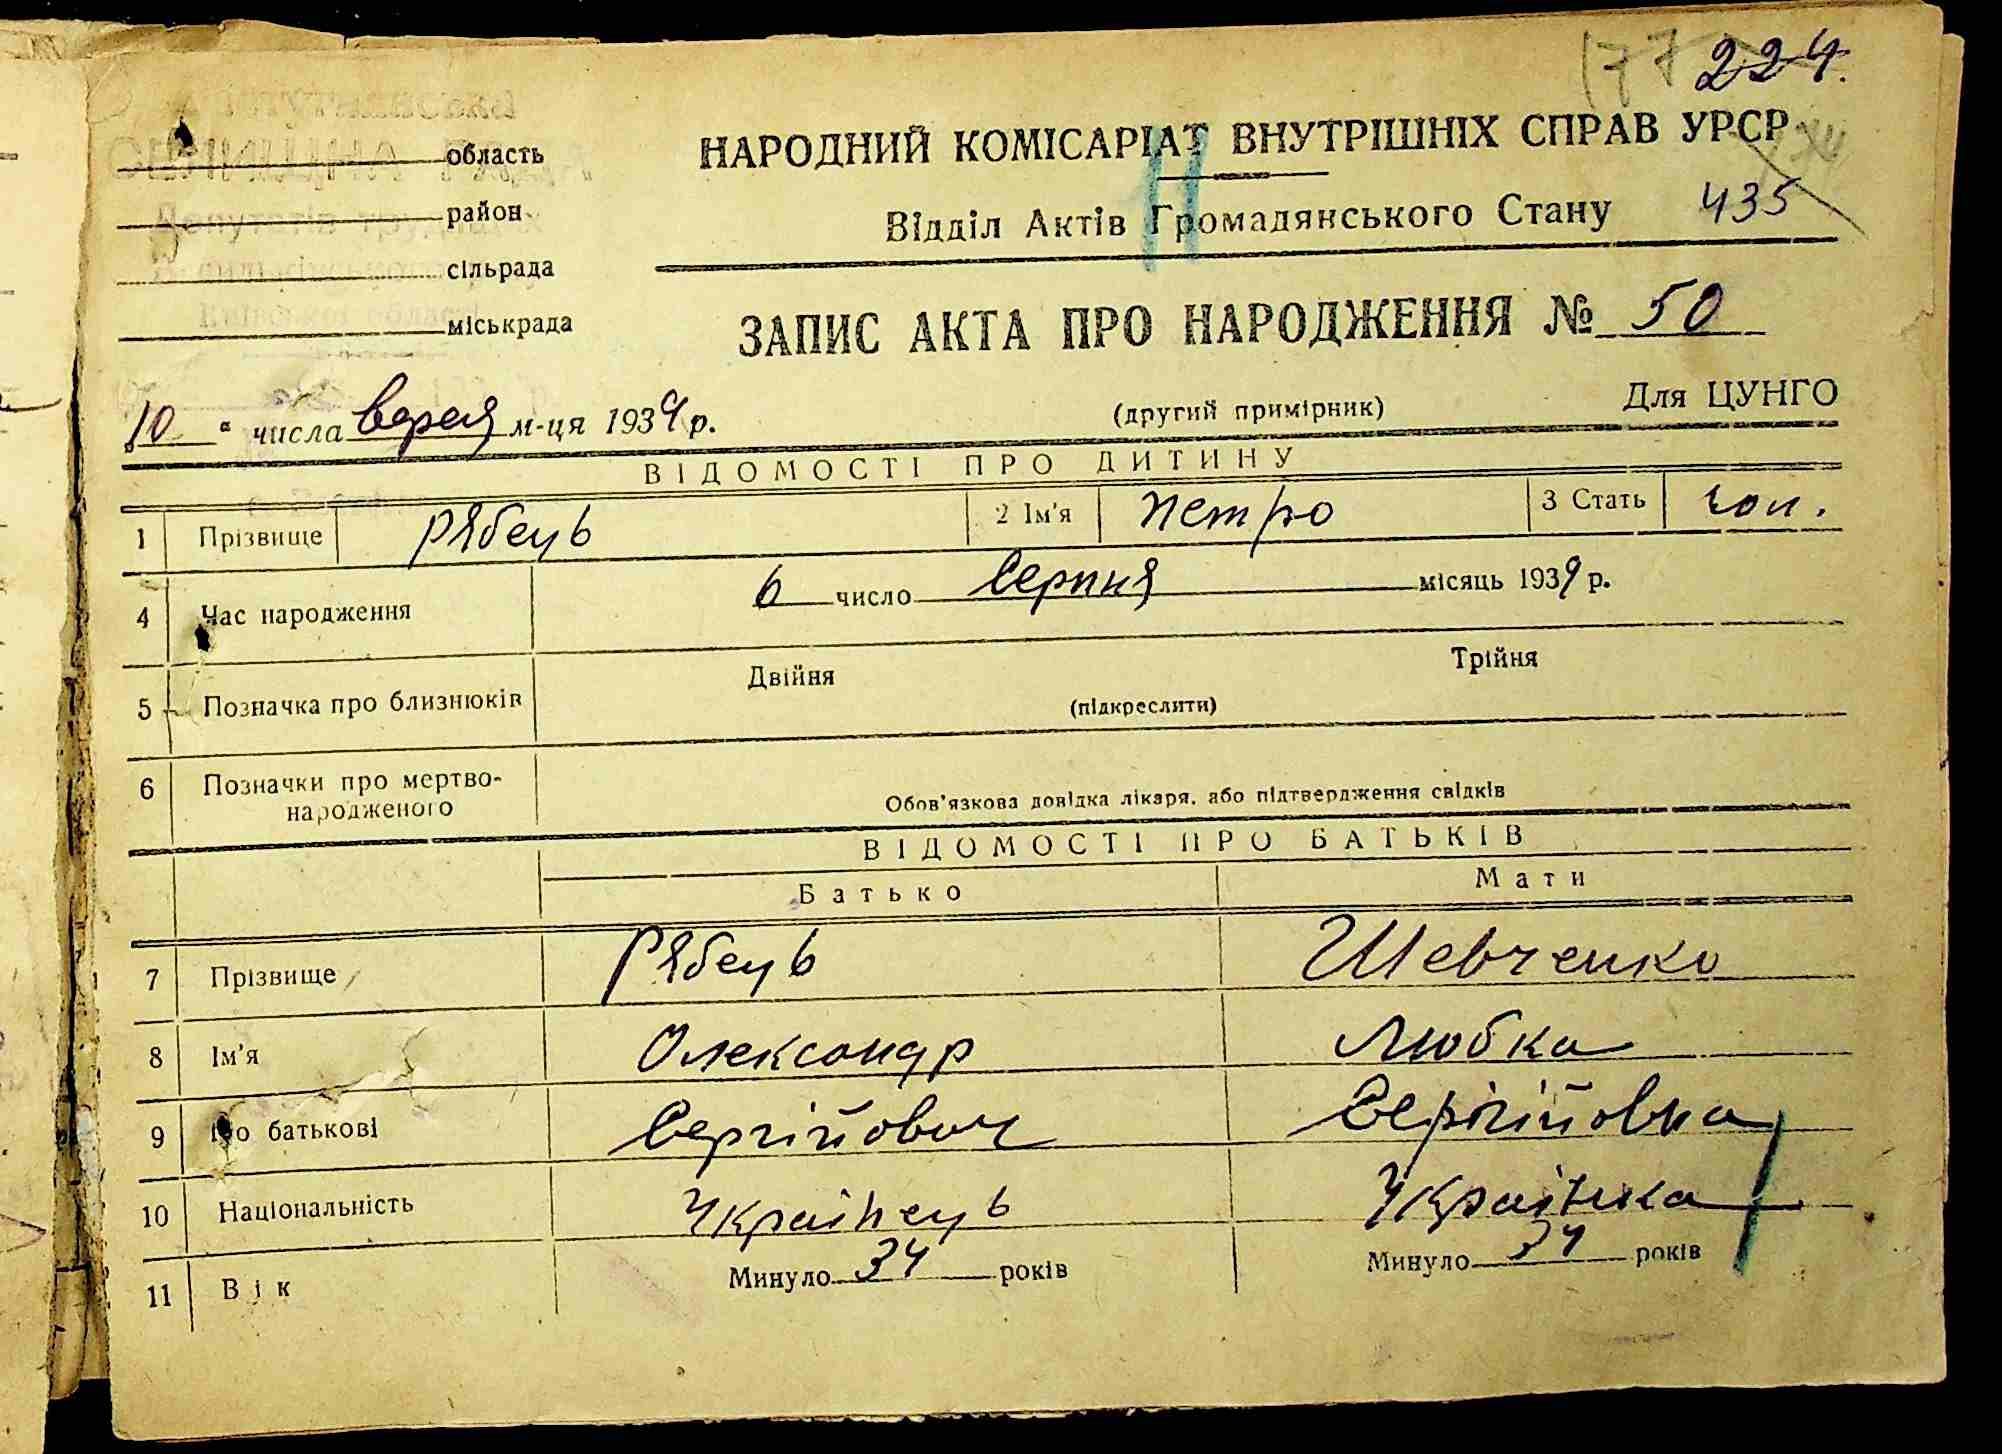 177 224.
область
НАРОДНИЙ КОМІСАРІАТ ВНУТРІШНІХ СПРАВ УРСР
район
Відділ Актів Громадянського Стану 435
сільрада
міськрада
ЗАПИС АКТА ПРО НАРОДЖЕННЯ № 50
"10" числа верес м-ця 1939 р.
(другий примірник)
Для ЦУНГО
ВІДОМОСТІ ПРО ДИТИНУ
1 Прізвище Рябець 2 Ім'я Петро 3 Стать чол.
4 Час народження 6 число Серпня місяць 1939 р.
5 Позначка про близнюків Двійня Трійня
(підкреслити)
6 Позначки про мертво-
народженого
Обов'язкова довідка лікаря, або підтвердження свідків
ВІДОМОСТІ ПРО БАТЬКІВ
Батько Мати
7 Прізвище Рябець Шевченко
8 Ім'я Олександр Любка
9 По батькові Сергійович Сергійовна
10 Національність Українець Українка
11 Вік Минуло 34 років Минуло 34 років